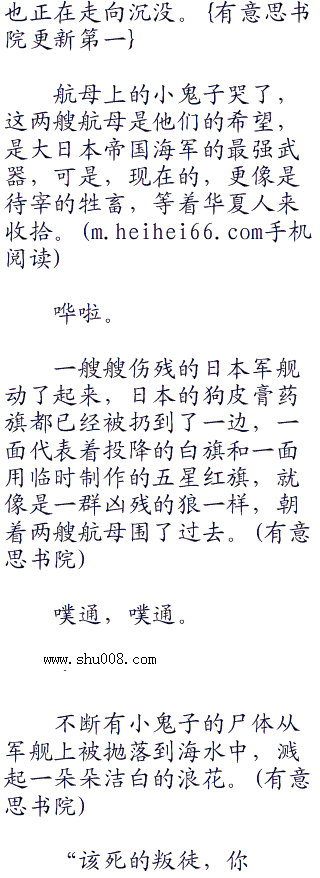 也正在走向沉没。{有意思书
院更新第一}
航母上的小鬼子哭了，
这两艘航母是他们的希望，
是大日本帝国海军的最强武
器，可是，现在的，更像是
待宰的牲畜，等着华夏人来
收拾。(m.heihei66.com手机
阅读)
哗啦。
一艘艘伤残的日本军舰
动了起来，日本的狗皮膏药
旗都已经被扔到了一边，一
面代表着投降的白旗和一面
用临时制作的五星红旗，就
像是一群凶残的狼一样，朝
着两艘航母围了过去。(有意
思书院)
噗通，噗通。
www.shu008.com
不断有小鬼子的尸体从
军舰上被抛落到海水中，溅
起一朵朵洁白的浪花。(有意
思书院)
“该死的叛徒，你